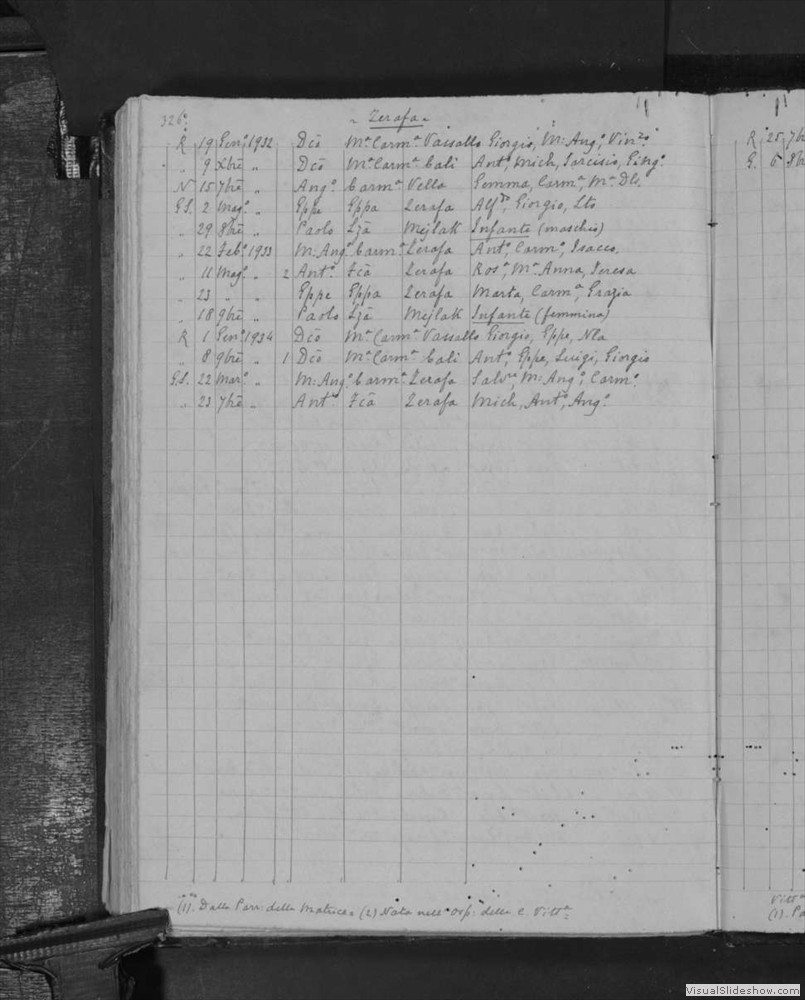 326.
- Zerafa -
R 19 Genº 1932 Dcō Mª Carmª Vassallo Giorgio, M: Angº, Vinzº
„ 9 Xbre „ Dcō Mª Carmª Cali Antº, Mich, Tarcisio,
N 15 7bre „ Angº Carmª Vella Gemma, Carmª, Mª Dls.
G.S. 2 Magº „ Eppe Eppa Zerafa Alfdº, Giorgio, Lto
„ 29 8bre „ Paolo Lzā Mejlak Infante (maschio)
„ 22 Febº 1933 M: Angº Carmª Zerafa Antº, Carmº, Isacco.
„ 11 Magº „ 2 Antº. Fcā Zerafa Rosª, Mª Anna, Teresa
„ 23 „ „ Eppe Eppa Zerafa Marta, Carmª, Grazia
„ 18 9bre „ Paolo Lzā Mejlak Infante (femmina)
R 1 Genº 1934 Dcō Mª Carmª Vassallo Giorgio, Eppe, Nla
„ 8 9bre „ 1 Dcō Mª Carmª Cali Antº, Eppe, Luigi, Giorgio
G.S. 22 Marº „ M: Angº Carmª Zerafa Salvre, M: Angº, Carmº.
„ 23 7bre „ Antº Fcā Zerafa Mich, Antº, Angº.
(1). Dalla Parr: della Matrice. (2) Nata nell' osp: della c. Vittª:
R 25 7b
G. 6 8b
Vittª
(1). Pa
VisualSlideshow.com